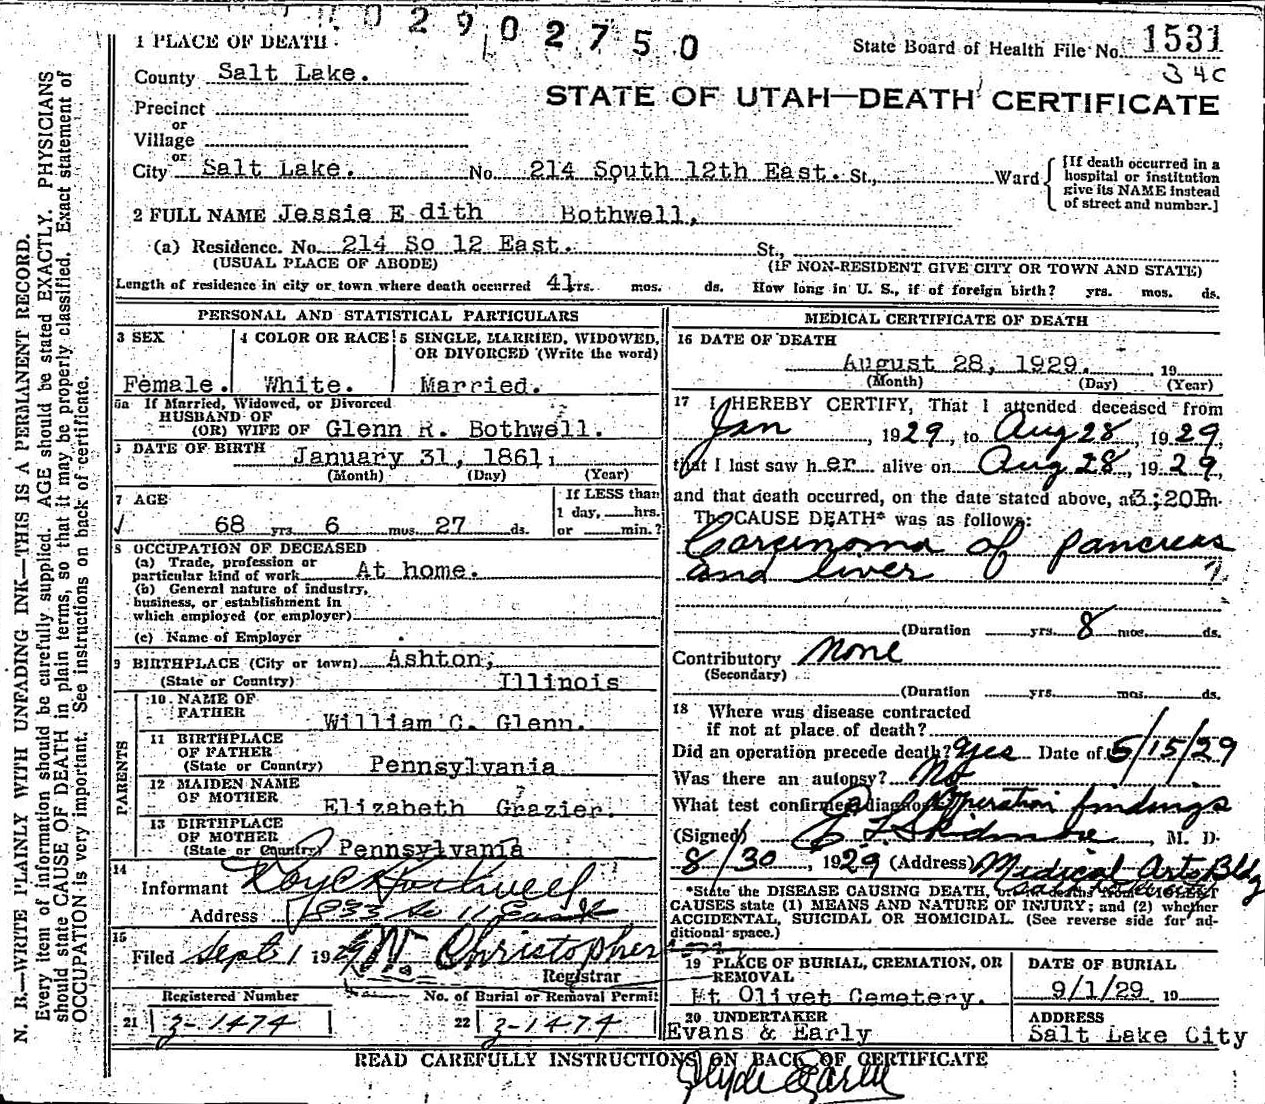 0290 2750
1 PLACE OF DEATH
State Board of Health File No. 1531
34c
County Salt Lake.
STATE OF UTAH—DEATH CERTIFICATE
Precinct
or
Village
or
City Salt Lake. No. 214 South 12th East. St., Ward
[If death occurred in a hospital or institution give its NAME instead of street and number.]
2 FULL NAME Jessie E dith Bothwell,
(a) Residence. No. 214 So 12 East. St.,
(USUAL PLACE OF ABODE) (IF NON-RESIDENT GIVE CITY OR TOWN AND STATE)
Length of residence in city or town where death occurred 41 yrs. mos. ds. How long in U. S., if of foreign birth? yrs. mos. ds.
PERSONAL AND STATISTICAL PARTICULARS
3 SEX
Female.
4 COLOR OR RACE
White.
5 SINGLE, MARRIED, WIDOWED, OR DIVORCED (Write the word)
Married.
5a If Married, Widowed, or Divorced
HUSBAND OF
(OR) WIFE OF Glenn R. Bothwell.
DATE OF BIRTH January 31, 1861,
(Month) (Day) (Year)
7 AGE
68 yrs 6 mos. 27 ds.
If LESS than
1 day, hrs.
or min.?
8 OCCUPATION OF DECEASED
(a) Trade, profession or
particular kind of work At home.
(b) General nature of industry,
business, or establishment in
which employed (or employer)
(c) Name of Employer
9 BIRTHPLACE (City or town) Ashton,
(State or Country) Illinois
PARENTS
10 NAME OF
FATHER William C. Glenn.
11 BIRTHPLACE
OF FATHER
(State or Country) Pennsylvania
12 MAIDEN NAME
OF MOTHER Elizabeth Grazier.
13 BIRTHPLACE
OF MOTHER
(State or Country) Pennsylvania
14
Informant Bothwell
Address 1833 So 11 East
15
Filed Sept 1 1929 Christopher
Registrar
Registered Number
21 3-1474
No. of Burial or Removal Permit
22 3-1474
MEDICAL CERTIFICATE OF DEATH
16 DATE OF DEATH
August 28, 1929. , 19
(Month) (Day) (Year)
17 I HEREBY CERTIFY, That I attended deceased from
Jan , 1929, to Aug 28 , 1929,
that I last saw h er alive on Aug 28 , 1929,
and that death occurred, on the date stated above, at 3:20P m.
The CAUSE DEATH* was as follows:
Carcinoma of pancreas
and liver ?
(Duration yrs. 8 mos. ds.
Contributory None
(Secondary)
(Duration yrs. mos. ds.
18 Where was disease contracted
if not at place of death?
Did an operation precede death? Yes Date of 5/15/29
Was there an autopsy? No
What test confirmed diagnosis Operation findings
(Signed) E L Skidmore , M. D.
8/30 , 1929 (Address) Medical Arts Bldg
*State the DISEASE CAUSING DEATH, or
CAUSES state (1) MEANS AND NATURE OF INJURY; and (2) whether
ACCIDENTAL, SUICIDAL OR HOMICIDAL. (See reverse side for ad-
ditional space.)
19 PLACE OF BURIAL, CREMATION, OR
REMOVAL
Mt Olivet Cemetery.
DATE OF BURIAL
9/1/29 19
20 UNDERTAKER
Evans & Early
ADDRESS
Salt Lake City
READ CAREFULLY INSTRUCTIONS ON BACK OF CERTIFICATE
Clyde Early
N. B.—WRITE PLAINLY WITH UNFADING INK—THIS IS A PERMANENT RECORD.
Every item of information should be carefully supplied. AGE should be stated EXACTLY. PHYSICIANS
should state CAUSE OF DEATH in plain terms, so that it may be properly classified. Exact statement of
OCCUPATION is very important. See instructions on back of certificate.